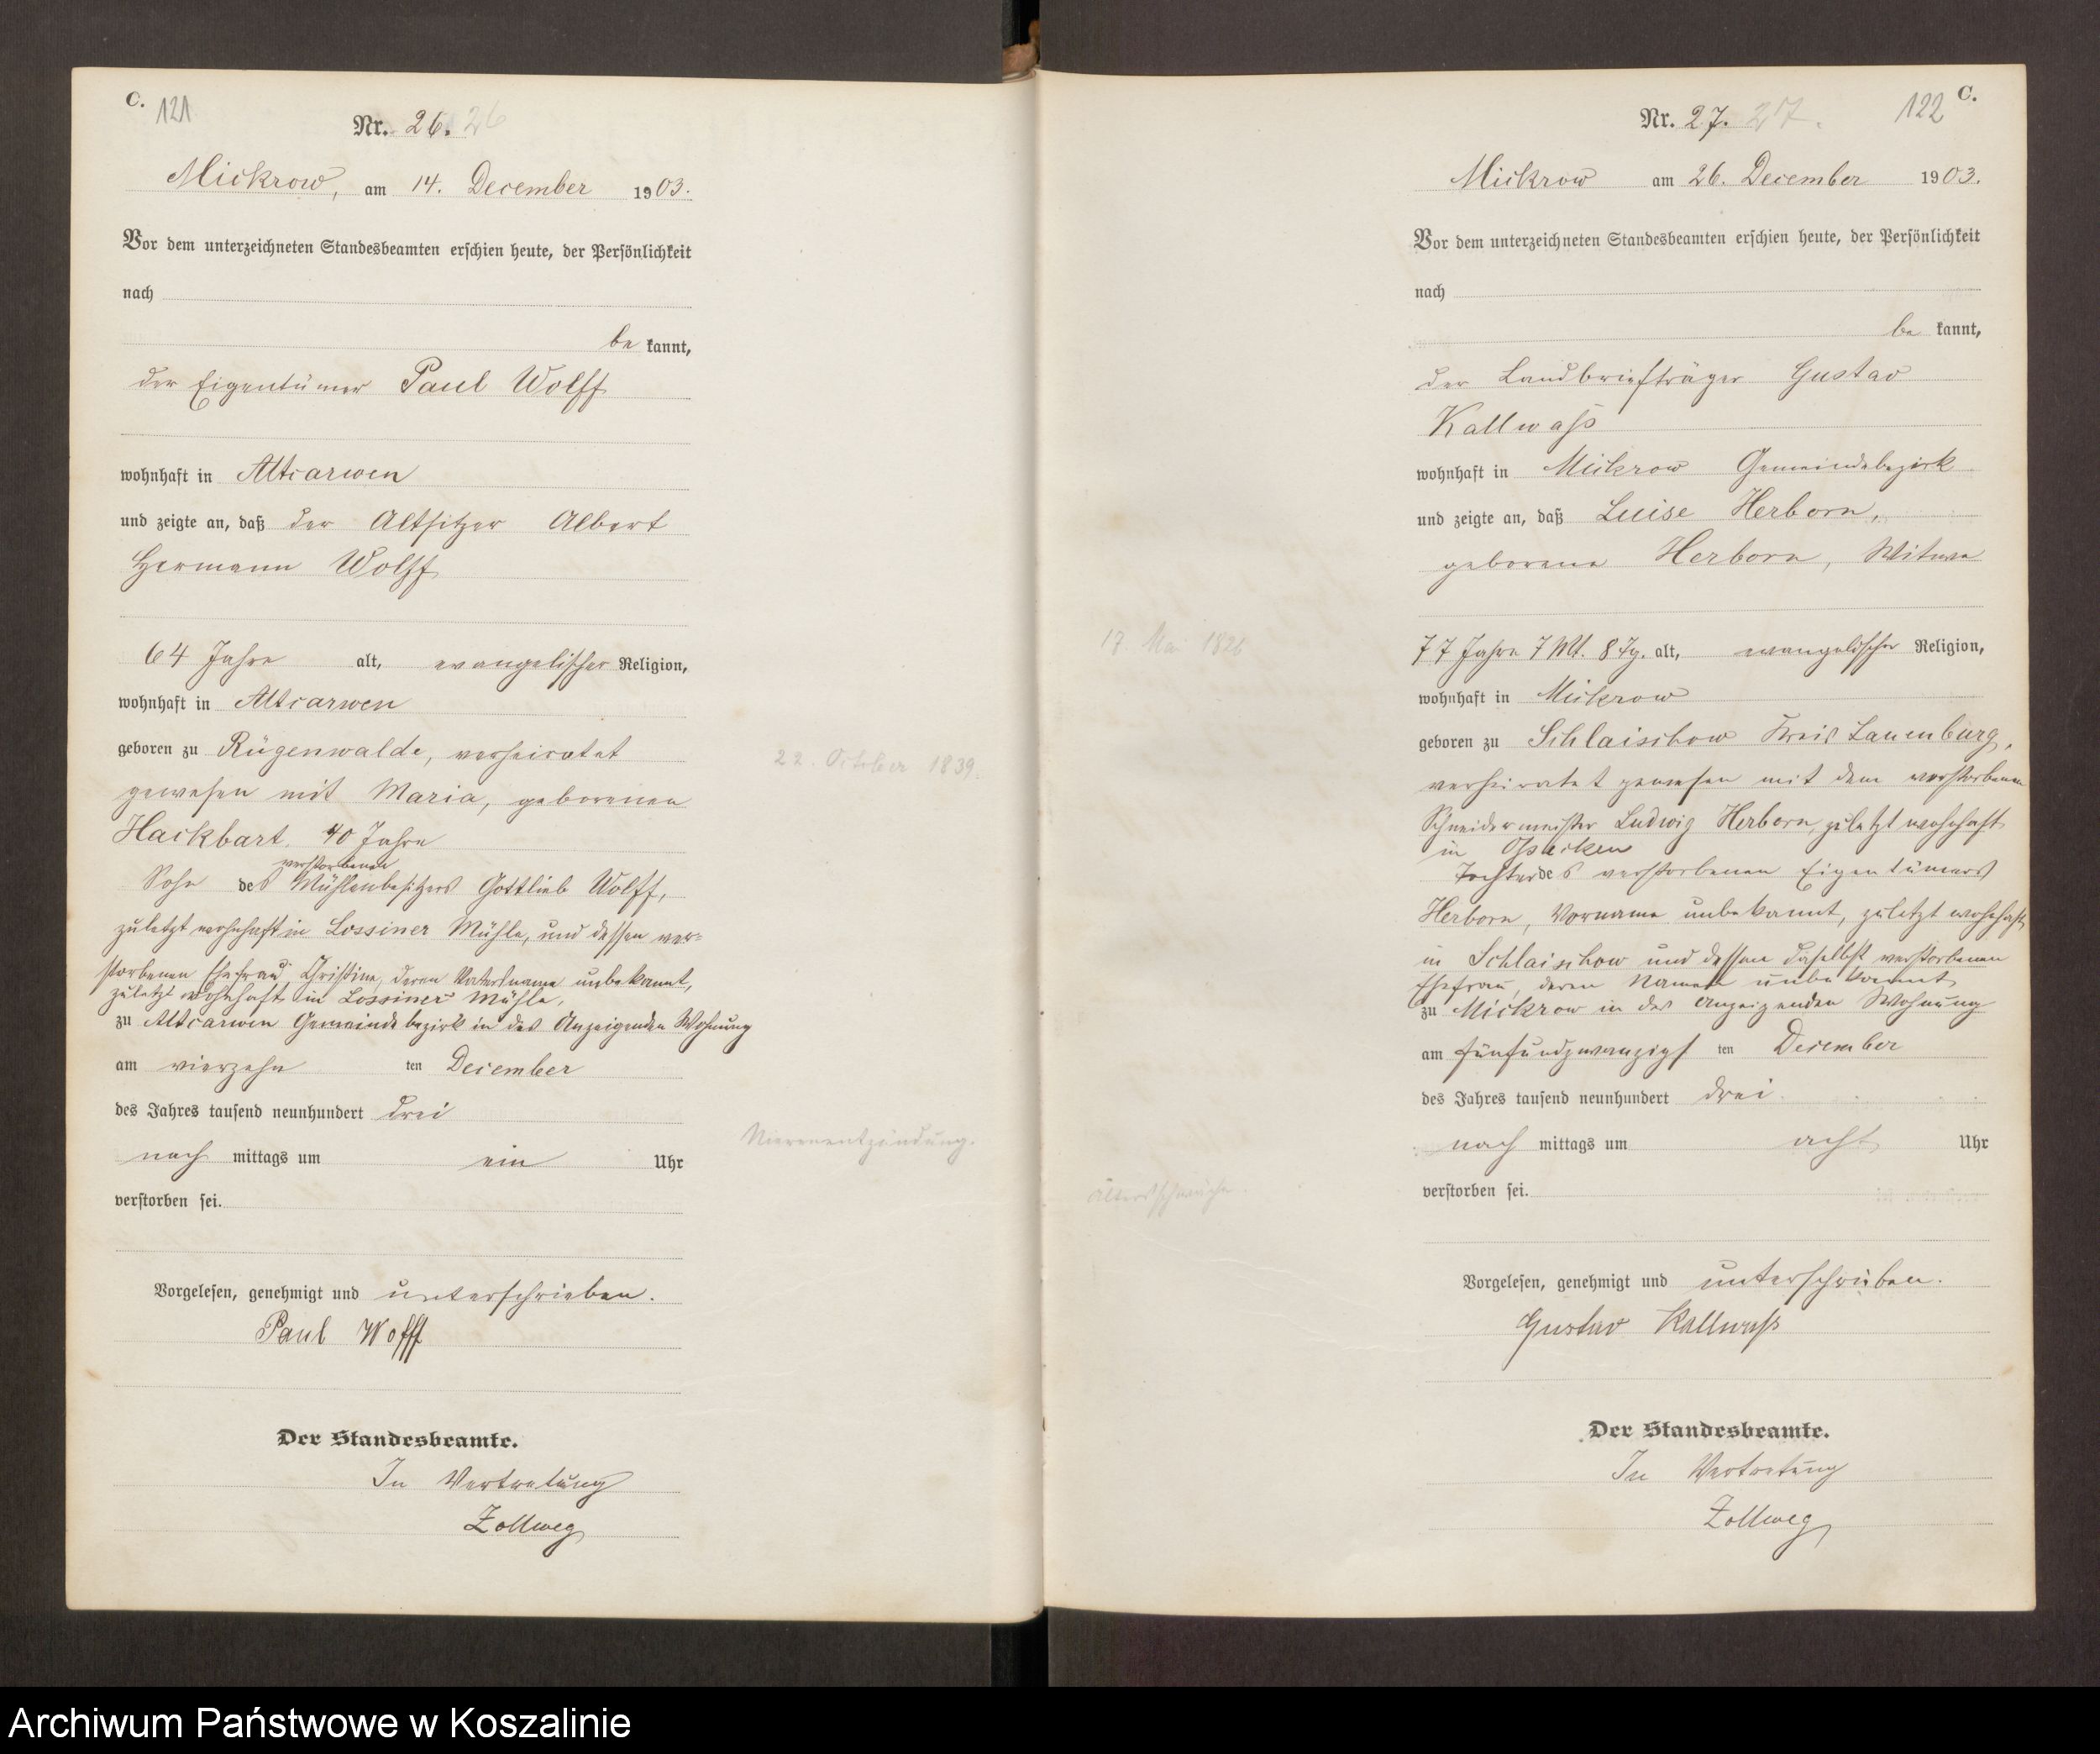 C. 121
Nr. 26. 26
Mickrow, am 14. December 1903.
Vor dem unterzeichneten Standesbeamten erschien heute, der Persönlichkeit
nach
be kannt,
der Eigentümer Paul Wolff
wohnhaft in Altcarwen
und zeigte an, daß der Altsitzer Albert
Hermann Wolff
64 Jahre alt, evangelischer Religion,
wohnhaft in Altcarwen
geboren zu Rügenwalde, verheiratet
22. October 1839.
gewesen mit Maria, geborenen
Hackbart. 40 Jahre
verstorbenen
Sohn des Mühlenbesitzers Gottlieb Wolff,
zuletzt wohnhaft in Lossiner Mühle, und dessen ver-
storbenen Ehefrau Christine, deren Vatersname unbekannt,
zuletzt wohnhaft in Lossiner Mühle,
zu Altcarwen Gemeindebezirk in des Anzeigenden Wohnung
am vierzehn ten December
des Jahres tausend neunhundert drei
Nierenentzündung.
nach mittags um ein Uhr
verstorben sei.
Vorgelesen, genehmigt und unterschrieben.
Paul Wolff
Der Standesbeamte.
In Vertretung
Zollweg
122 C.
Nr. 27. 27.
Mickrow am 26. December 1903.
Vor dem unterzeichneten Standesbeamten erschien heute, der Persönlichkeit
nach
be kannt,
der Landbriefträger Gustav
Kallwaß
wohnhaft in Mickrow Gemeindebezirk
und zeigte an, daß Luise Herborn,
geborene Herborn, Witwe
17. Mai 1826
77 Jahre 7 Mt. 8 Tg. alt, evangelischer Religion,
wohnhaft in Mickrow
geboren zu Schlaischow Kreis Lauenburg,
verheiratet gewesen mit dem verstorbenen
Schneidermeister Ludwig Herborn, zuletzt wohnhaft
in Ossecken
Tochter des verstorbenen Eigentümers
Herborn, Vorname unbekannt, zuletzt wohnhaft
in Schlaischow und dessen daselbst verstorbenen
Ehefrau, deren Namen unbekannt
zu Mickrow in des Anzeigenden Wohnung
am fünfundzwanzigs ten December
des Jahres tausend neunhundert drei
nach mittags um acht Uhr
Altersschwäche.
verstorben sei.
Vorgelesen, genehmigt und unterschrieben.
Gustav Kallwaß
Der Standesbeamte.
In Vertretung
Zollweg
Archiwum Państwowe w Koszalinie